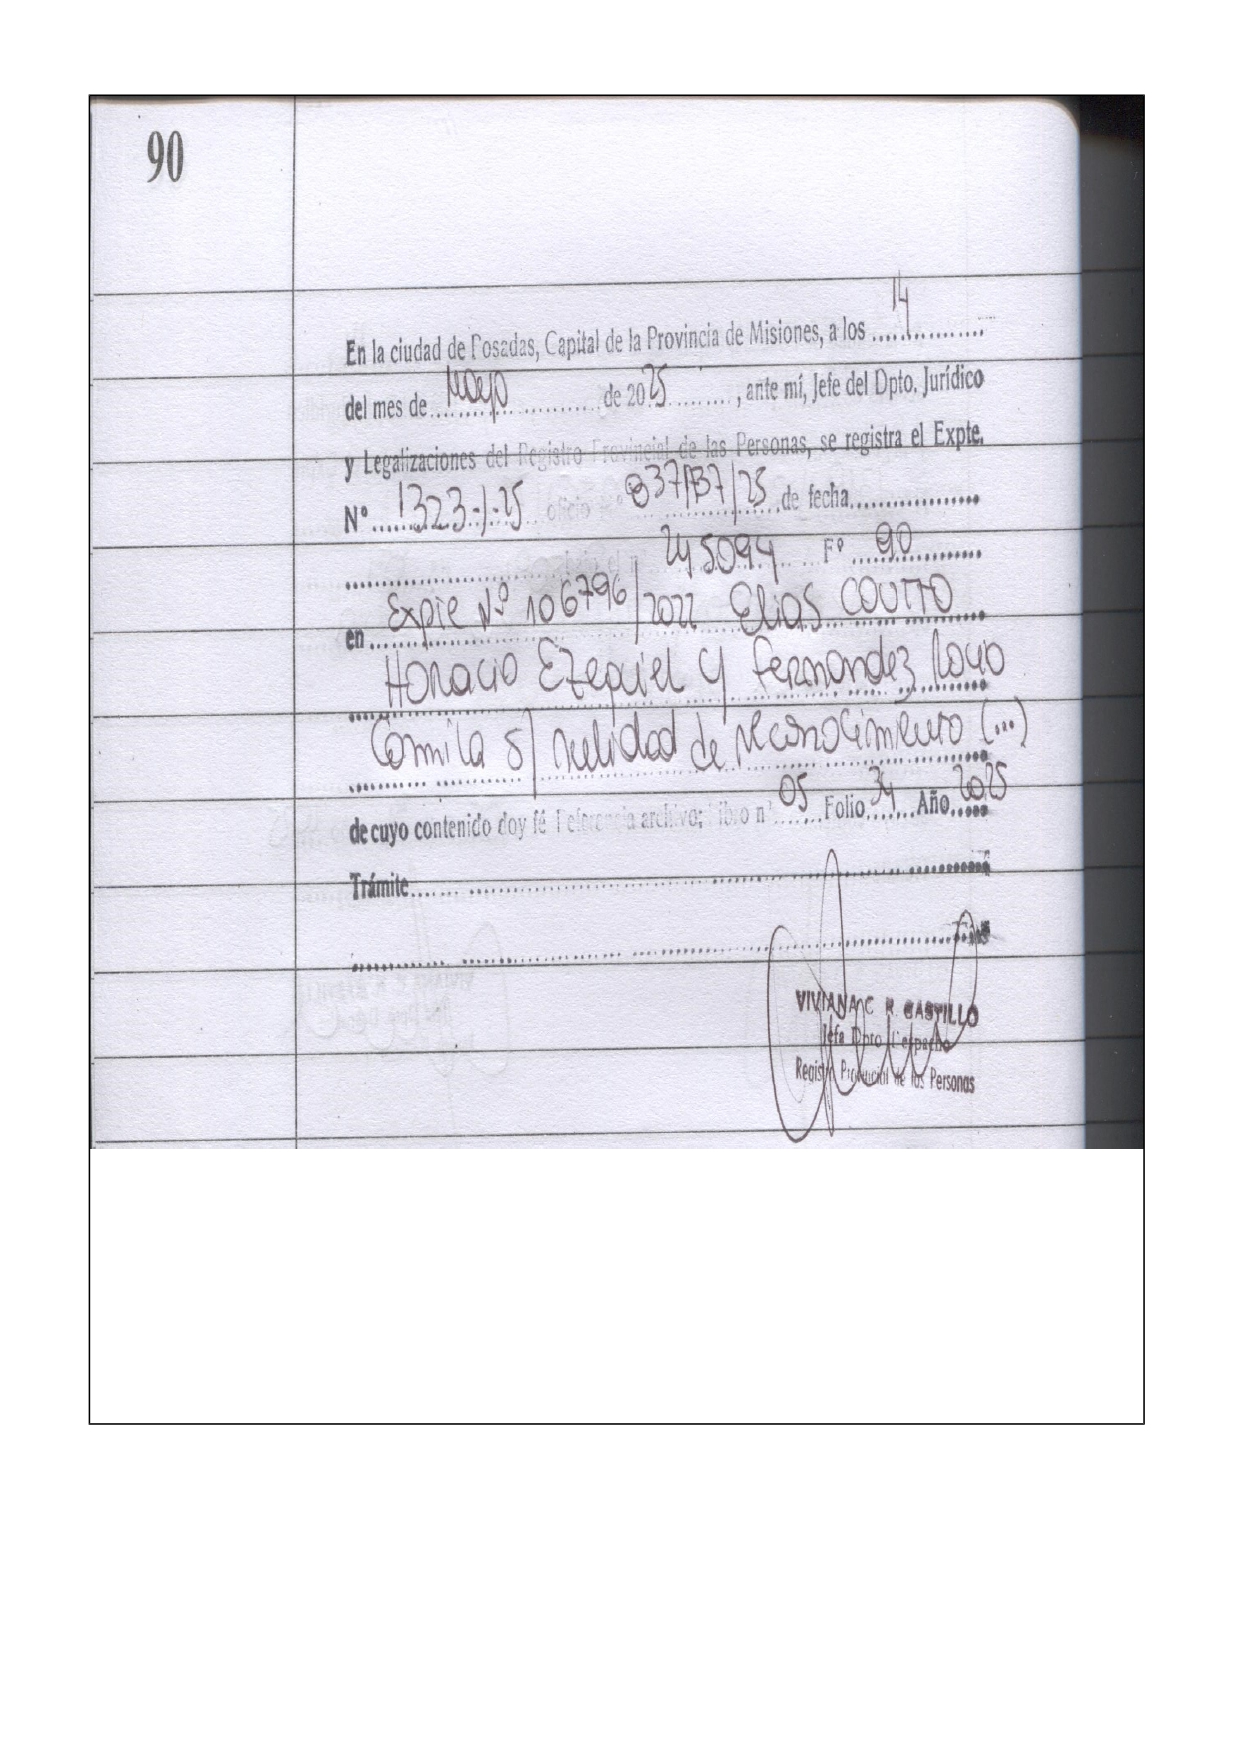 90
En la ciudad de Posadas, Capital de la Provincia de Misiones, a los 14
del mes de Mayo de 2025, ante mí, Jefe del Dpto. Jurídico
y Legalizaciones del Registro Provincial de las Personas, se registra el Expte.
N° 1323-J-25 oficio N° 837/137/25 de fecha
245094 F° 90
en Expte Nº 106796/2022 Elias COUTTO
Horacio Ezequiel y Fernandez
Camila s/ nulidad de reconocimiento (...)
de cuyo contenido doy fé Referencia archivo; Libro n° 05 Folio 34 Año 2025
Trámite
VIVIANA C R CASTILLO
Jefa Dpto Despacho
Registro Provincial de las Personas